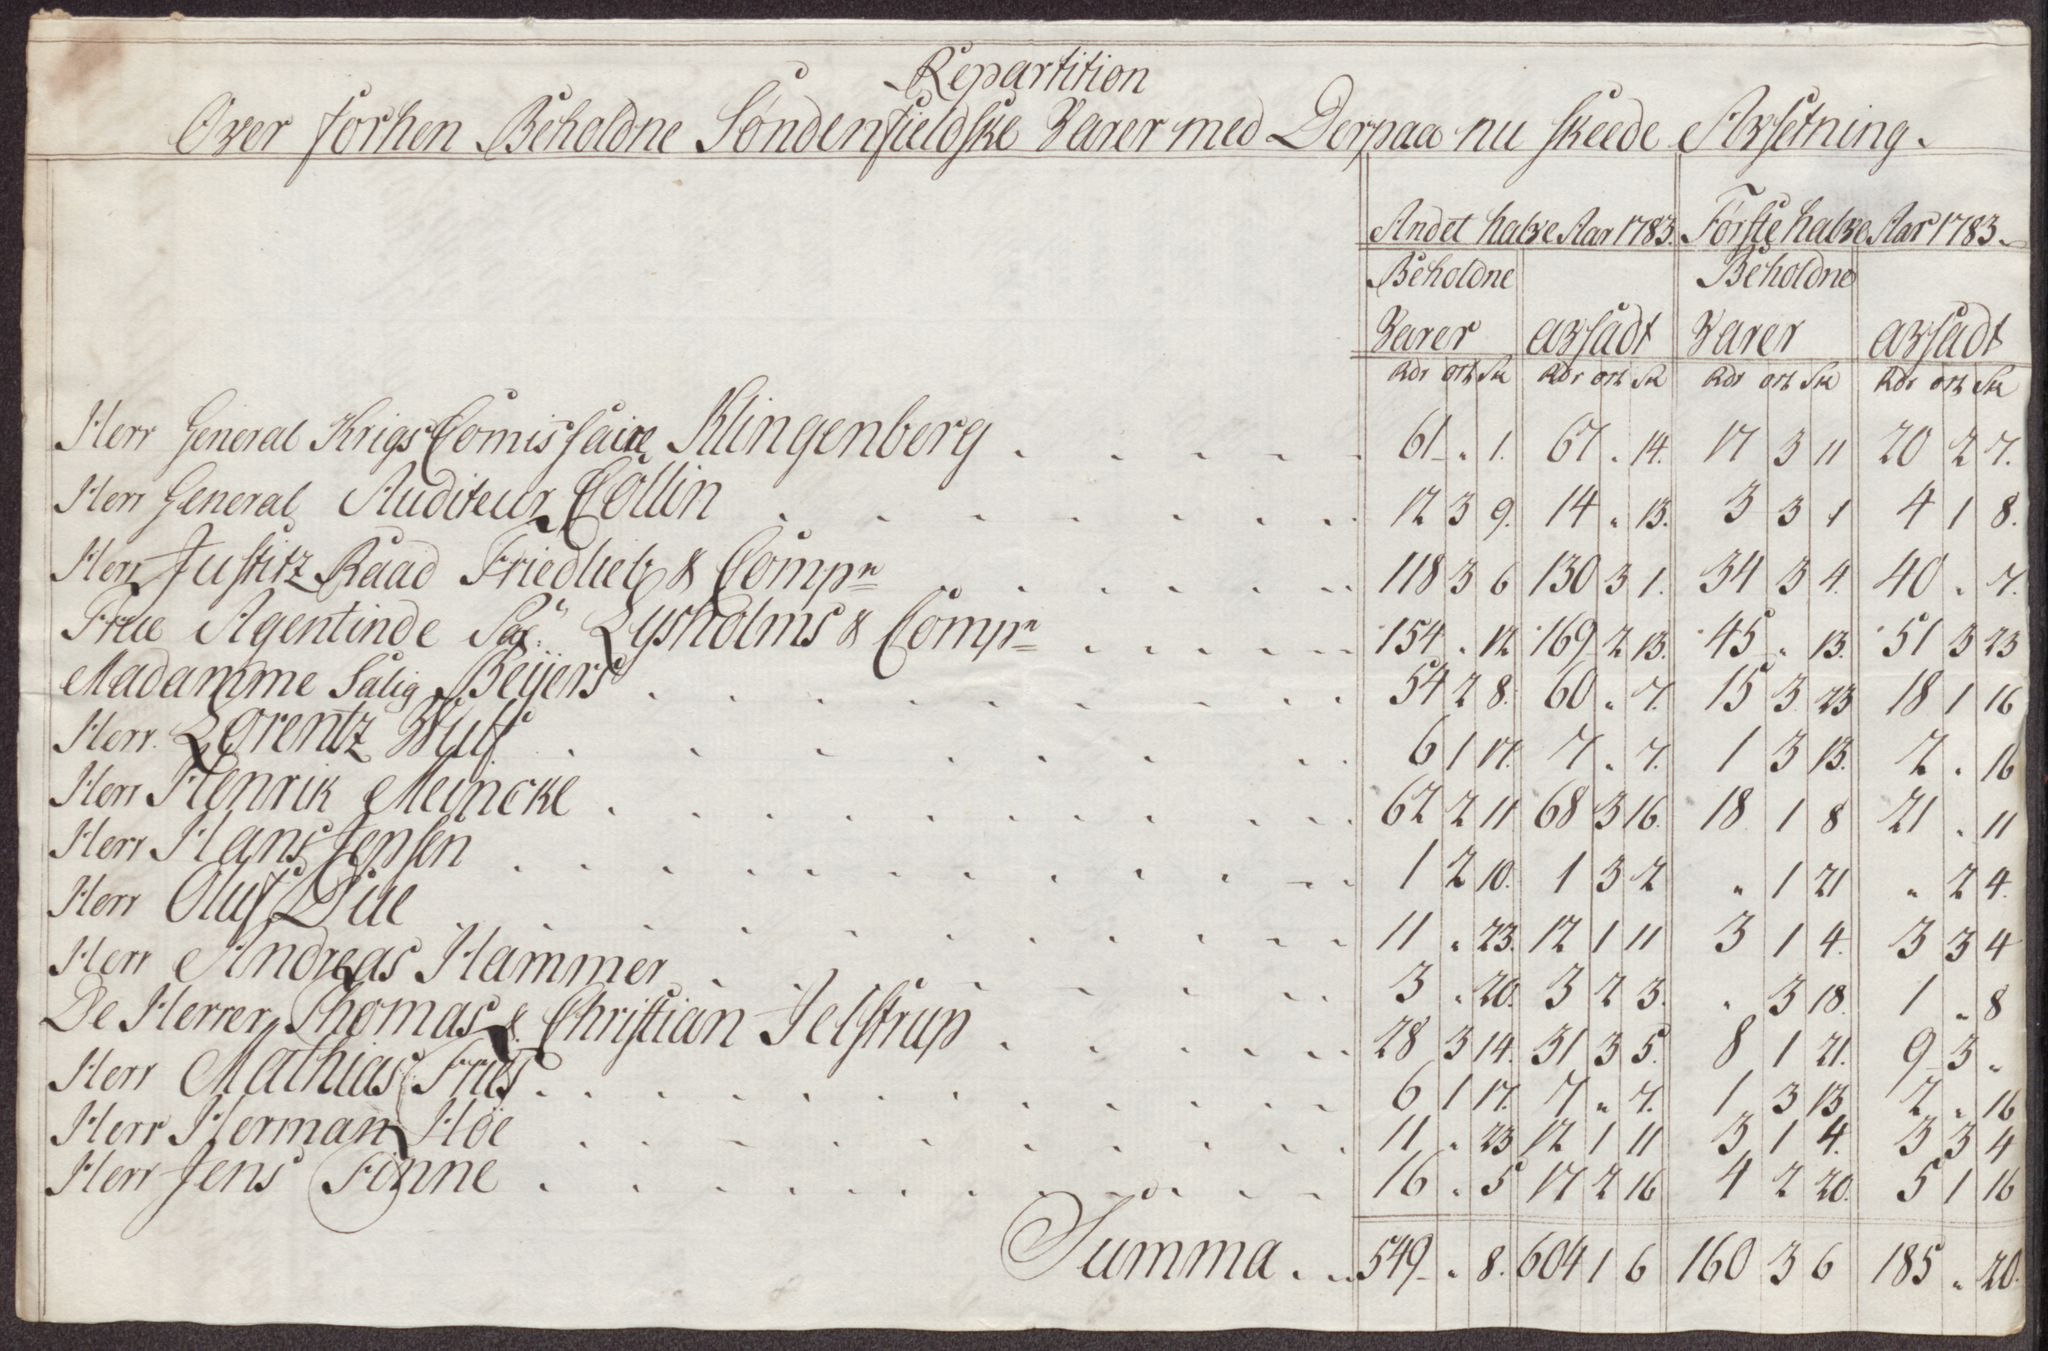 Repartition
Over forhen Beholdne Søndenfieldske Varer med Derpaa nu skeede Afsetning.
Andet halve Aar 1783. Første halve Aar 1783.
Beholdne Beholdne
Varer avsadt Varer avsadt
Rdr ort Sk Rdr ort Sk Rdr ort Sk Rdr ort Sk
Herr General Krigs Comissaire Klingenberg . . . . . 61 " 1. 67 " 14. 17 3 11 20 2 7.
Herr General Auditeur Collin . . . . . . . 12 3 9. 14 " 13. 3 3 1 4 1 8.
Herr Justitz Raad Friedlieb & Compn . . . . . 118 3 6 130 3 1. 34 3 4. 40 " 7.
Frue Agentinde Sal. Lysholms & Compn . . . . . 154 " 12 169 2 13. 45 " 13. 51 3 23
Madamme Salig Beyers . . . . . . . 54 2 8. 60 " 7. 15 3 23 18 1 16
Herr Lorentz Wulf . . . . . . . 6 1 17. 7 " 7. 1 3 13. 2 " 16
Herr Henrik Meincke . . . . . . . 62 2 11 68 3 16. 18 1 8 21 " 11
Herr Hans Jensen . . . . . . . 1 2 10. 1 3 2 " 1 21 " 2 4.
Herr Oluf Due . . . . . . . 11 " 23. 12 1 11 3 1 4. 3 3 4
Herr Andreas Hammer . . . . . . . 3 " 20. 3 2 3. " 3 18. 1 " 8
De Herrer Thomas & Christian Jelstrup . . . . . 28 3 14. 31 3 5. 8 1 21. 9 3 "
Herr Mathias Friis . . . . . . . 6 1 17. 7 " 7. 1 3 13 2 " 16
Herr Herman Hoe . . . . . . . 11 " 23 12 1 11 3 1 4. 3 3 4
Herr Jens Finne . . . . . . . 16 " 5 17 2 16 4 2 20. 5 1 16
Summa . . 549 " 8. 604 1 6 160 3 6 185 " 20.